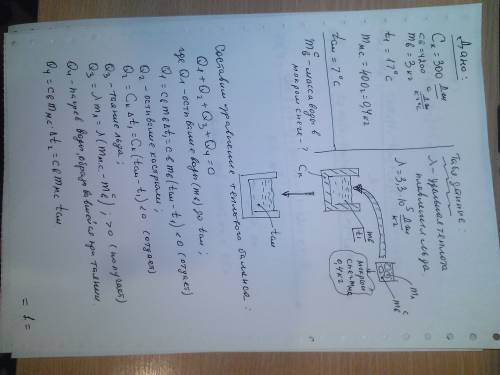 Дано:
Cк = 300 Дж/°C
cв = 4200 Дж/кг°C
mв = 3 кг
t1 = 17°C
mмс = 400г = 0,4 кг
tсм = 7°C
mв - масса воды в
мокром снеге - ?
Табл данные:
λ - удельная теплота
плавления льда
λ = 3,3·10⁵ Дж/кг
Cк
t1
mв
mл
mв
мокрый
снег mмс
0,4 кг
tсм
Составим уравнение теплового баланса:
Q1 + Q2 + Q3 + Q4 = 0
где Q1 - остывание воды (mв) до tсм;
Q1 = cв mв Δt1 = cв mв (tсм - t1) < 0 (отдаёт)
Q2 - остывание кастрюли;
Q2 = Cк Δt1 = Cк (tсм - t1) < 0 (отдаёт)
Q3 - таяние льда;
Q3 = λ mл = λ (mмс - mв); > 0 (получает)
Q4 - нагрев воды, образовавшейся при таянии
Q4 = cв mмс Δt2 = cв mмс tсм
= 1 =